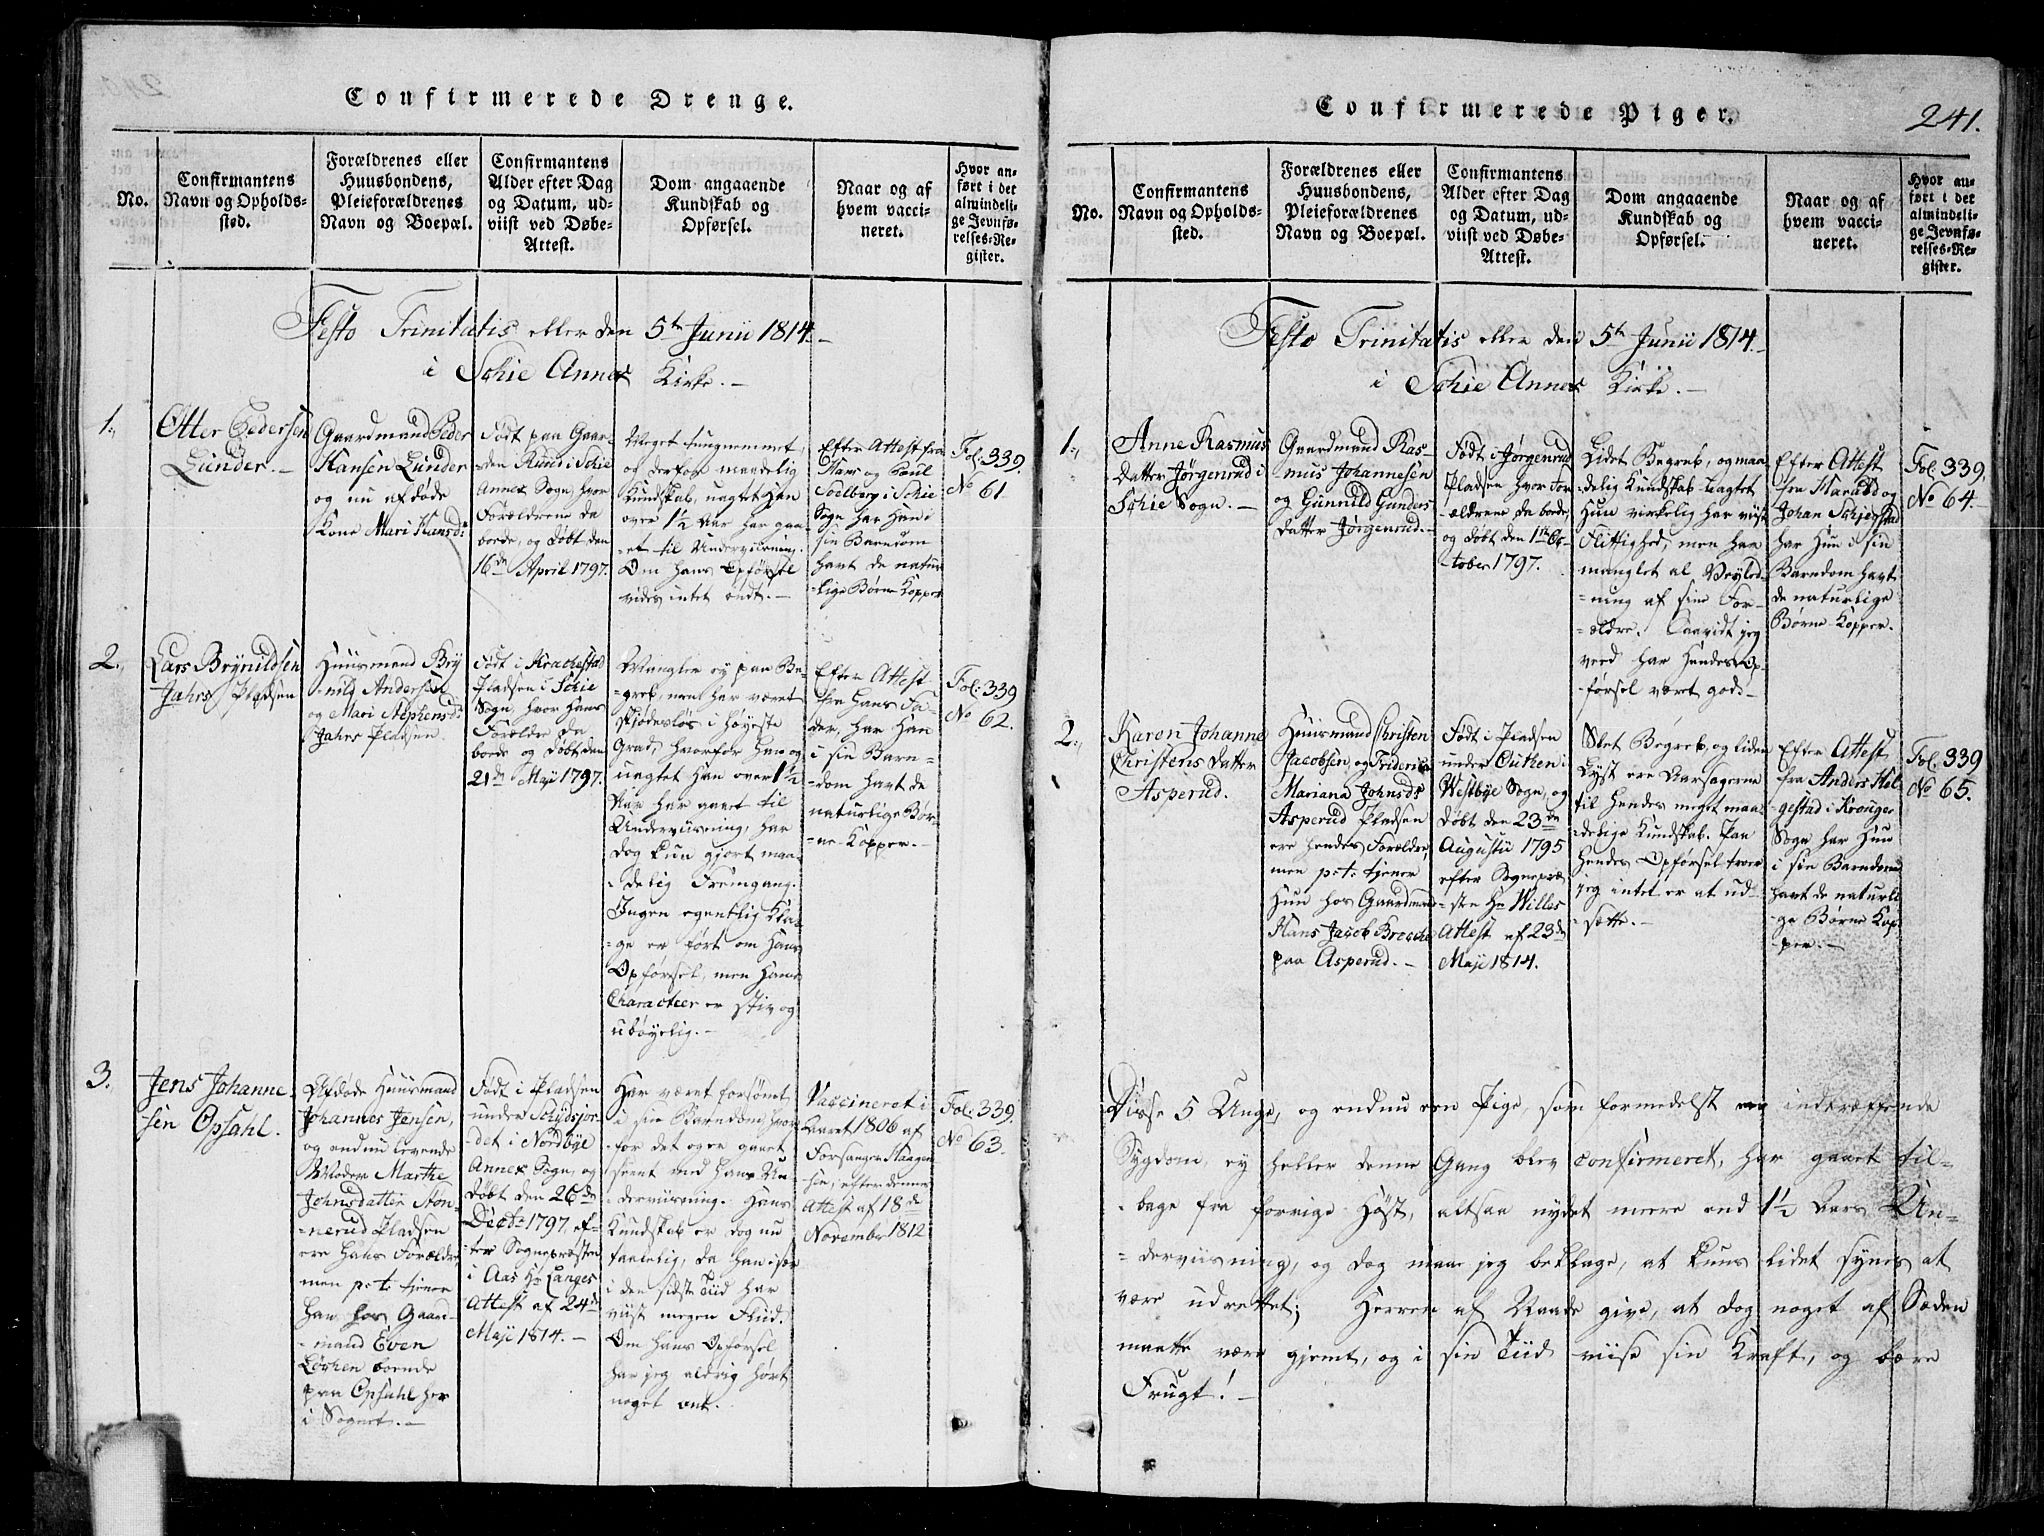 Confirmerede Drenge.
No.
Confirmantens
Navn og Opholds-
sted.
Forældrenes eller
Huusbondens,
Pleieforældrenes
Navn og Boepæl.
Confirmantens
Alder efter Dag
og Datum, ud-
viist ved Døbe-
Attest.
Dom angaaende
Kundskab og
Opførsel.
Naar og af
hvem vacci-
neret.
Hvor an-
ført i det
almindeli-
ge Jevnfø-
relses-Re-
gister.
Festo Trinitatis eller den 5te Junii 1814.-
i Schie Annex Kirke.-
1.,
Otter Pedersen
Lunder.-
Gaardmand Peder
Hansen Lunder
og nu afdøde
Kone Mari Hansd:
Født paa Gaar-
den Rud i Schie
Annex Sogn, hvor
Forældrene da
boede, og døbt den
16de April 1797.
Meget tungnemmet,
og derfor maadelig
Kundskab, uagtet Han
over 1½ Aar har gaa-
et til Underviisning.
Om hans Opførsel
vides intet ondt.-
Efter Attest fra
Hans og Poul
Solberg i Schie
Sogn har Han i
sin Barndom
havt de natur
-lige Børne Kopper
Fol. 339.
No 61.
2.,
Lars Brynildsen
Jahrs Pladsen
Huusmand Bry
-nild Andersen
og Mari Stephensd:
Jahrs Pladsen.
Født i Krachestad
Pladsen i Schie
Sogn, hvor Hans
Forældre da
boede og døbt den
21de Maji 1797.
Mangler ey paa Be-
greb, men har været
skjødesløs i høyeste
Grad, hvorfor Han og
uagtet Han over 1½
Aar har gaaet til
Underviisning, har
dog kun gjort maa-
-delig Fremgang.
Ingen egentlig Kla-
-ge er ført om Hans
Opførsel, men Hans
Characteer er stiv og
ubøyelig.-
Efter Attest
fra Hans Fa-
der, har Han
i sin Barn-
-dom havt de
naturlige Bør-
-ne-Kopper.-
Fol. 339
No 62.
3.
Jens Johanne-
sen Opsahl.
Afdøde Huusmand
Johannes Jensen,
og endnu levende
Moder Marthe
Johnsdatter
-nerud Pladsen
ere Hans Forældre
men p. t. tjener
Han hos Gaard-
-mand Even
boende
paa Opsahl her
i Sognet.-
Født i Pladsen
under
-det i Nordbye
Annex Sogn, og
døbt den 26de
Decbr 1797, ef-
-ter Sognepræsten
i Aas Hr Langes
Attest af 24de
Maji 1814.-
Har været forsømt
i sin Barndom, hvor-
-for det ogsaa gaaet
seent med Hans Un
-derviisning. Hans
Kundskab er dog nu
taalelig, da Han især
i den sidste Tiid har
viist megen Fliid.
Om Hans Opførsel
har jeg aldrig hørt
noget ont.
Vaccineret i
Aaret 1806 af
Forsanger Haagen-
sen, efter dennes
Attest af 18de
Novembr 1812
Fol. 339.
No 63.
Confirmerede Piger.
241.
No.
Confirmantens
Navn og Opholds-
sted.
Forældrenes eller
Huusbondens,
Pleieforældrenes
Navn og Boepæl.
Confirmantens
Alder efter Dag
og Datum, ud-
viist ved Døbe-
Attest.
Dom angaaende
Kundskab og
Opførsel.
Naar og af
hvem vacci-
neret.
Hvor an-
ført i det
almindeli-
ge Jevnfø-
relses-Re-
gister.
Festo Trinitatis eller den 5te Junii 1814.-
i Schie Annex Kirke.-
1.,
Anne Rasmus
Datter Jørgenrud i
Schie Sogn.-
Gaardmand Ras-
mus Johannesen
og Gunnild Gunders
Datter Jørgenrud.-
Født i Jørgenrud
Pladsen hvor For
-ældrene da boede,
og døbt den 1ste Oc-
-tober 1797.
Lidet Begreb, og maa
-delig Kundskab. Uagtet
Hun virkelig har viist
Flittighed, men har
manglet al Veyled-
-ning af sine For-
-ældre. Saavidt jeg
veed har Hendes Op-
førsel været god.-
Efter Attest
fra Harald og
Johan
har Hun i sin
Barndom havt
de naturlige
Børne-Kopper.
Fol. 339.
No 64.
2.,
Karen Johanne
Christens Datter
Asperud.
Huusmand Christen
Jacobsen, og Friderica
Mariana Johnsd:
Asperud Pladsen
ere Hendes Forældre,
men p. t. tjener
Hun hos Gaardmand
Hans Jacob Breche
paa Asperud.-
Født i Pladsen
under Cuthen i
Westbye Sogn, og
døbt den 23de
Augustii 1795
efter Sognepræ-
-sten Hr Willes
Attest af 23de
Maji 1814.
Slet Begreb, og liden
Lyst ere Aarsagerne
til Hendes meget maa-
-delige Kundskab. Paa
Hendes Opførsel troer
jeg intet er at ud-
-sætte.-
Efter Attest
fra Anders Hel-
gestad i Kroeger
Sogn har Hun
i sin Barndom
havt de naturli-
-ge Børne Kop-
per.-
Fol. 339
No 65.
Disse 5 Unge, og endnu een Pige, som formedelst indtræffende
Sygdom, ey heller denne Gang blev confirmeret, har gaaet til-
-bage fra forrige Høst, altsaa nydet meere end 1½ Aars Un-
-derviisning, og dog maa jeg beklage, at kuns lidet synes at
være udrettet; Herren af Naade give, at dog noget af Sæden
maatte være gjemt, og i sin Tiid viise sin Kraft, og bære
Frugt!-